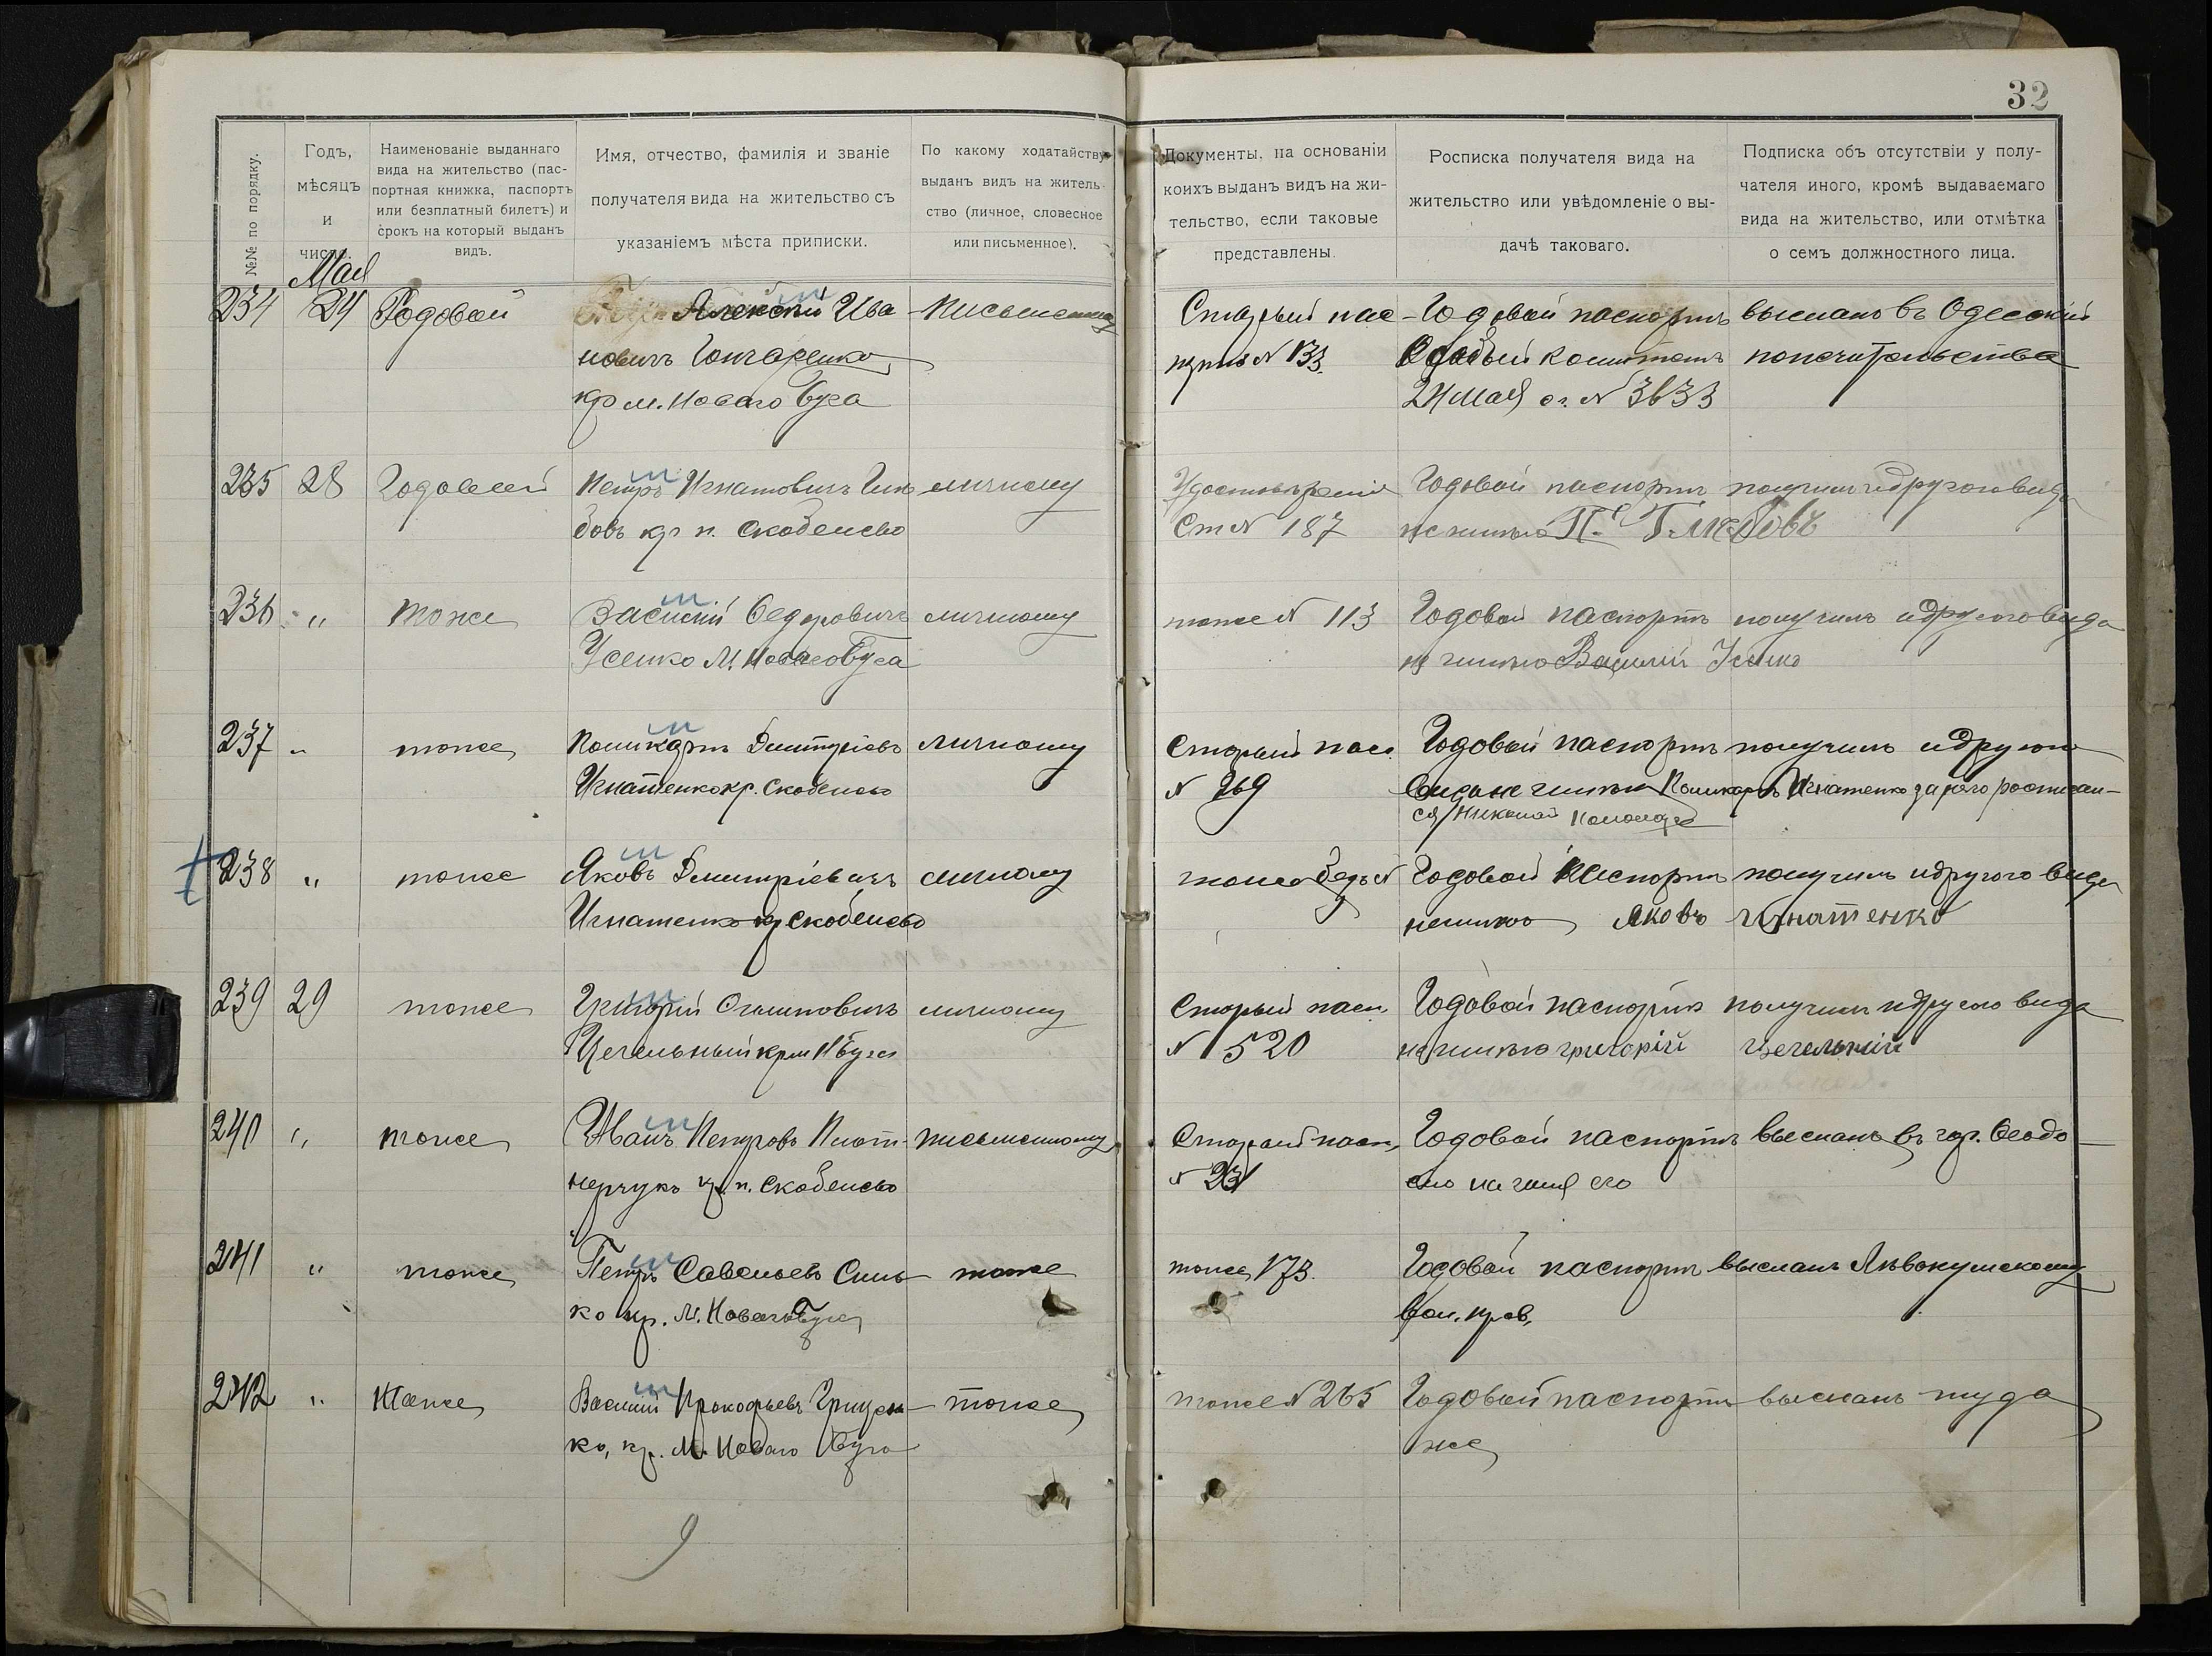 32
№№ по порядку.
Годъ,
мѣсяцъ
и
число.
Наименованіе выданнаго
вида на жительство (пас-
портная книжка, паспортъ
или безплатный билетъ) и
срокъ на который выданъ
видъ.
Имя, отчество, фамилія и званіе
получателя вида на жительство съ
указаніемъ мѣста приписки.
По какому ходатайству
выданъ видъ на житель-
ство (личное, словесное
или письменное).
Документы, на основаніи
коихъ выданъ видъ на жи-
тельство, если таковые
представлены.
Росписка получателя вида на
жительство или увѣдомленіе о вы-
дачѣ таковаго.
Подписка объ отсутствіи у полу-
чателя иного, кромѣ выдаваемаго
вида на жительство, или отмѣтка
о семъ должностного лица.
Мая
234 24 Годовой Алексѣй Ива письменному Старый пас- Годовой паспортъ высланъ въ Одесскій
новичъ Гончаренко портъ № 133 Комитетъ попечительства
кр м. Новаго Буга 24 мая № 3633
235 28 Годовой Петръ Игнатовичъ Глѣ личному Удостовѣреніе Годовой паспортъ получилъ и другого вида
бовъ кр п. Скобелево Ст № 187 не имѣю П. Глѣбовъ
236 " тоже Василій Федоровичъ личному тоже № 113 Годовой паспортъ получилъ и другого вида
Усенко М. Новаго Буга не имѣю Василій Усенко
237 " тоже Поликарпъ Дмитріевъ личному Старый пасп. Годовой паспортъ получилъ и другого
Игнатенко кр. Скобелево № 269 вида не имѣю Поликарпъ Игнатенко за него росписал-
ся Николай
238 " тоже Яковъ Дмитріевичъ личному тоже безъ № Годовой паспортъ получилъ и другого вида
Игнатенко кр Скобелево не имѣю Яковъ Игнатенко
239 29 тоже Григорій Осиповичъ личному Старый пасп Годовой паспортъ получилъ и другого вида
Цегельный кр м Н Буга № 520 не имѣю григорій цегельний
240 " тоже Иванъ Петровъ Плот- письменному Старый пасп, Годовой паспортъ высланъ въ гор. Феодо-
нерчукъ кр. п. Скобелево № 231 сію на имя его
241 " тоже Петръ Савельевъ Синь- тоже тоже 173. Годовой паспортъ высланъ Лѣвокумскому
ко кр. М. Новаго Буга вол. прав.
242 " тоже Василій Прокофьевъ Грицен- тоже тоже № 265 Годовой паспортъ высланъ туда
ко, кр. М. Новаго Буга же
9